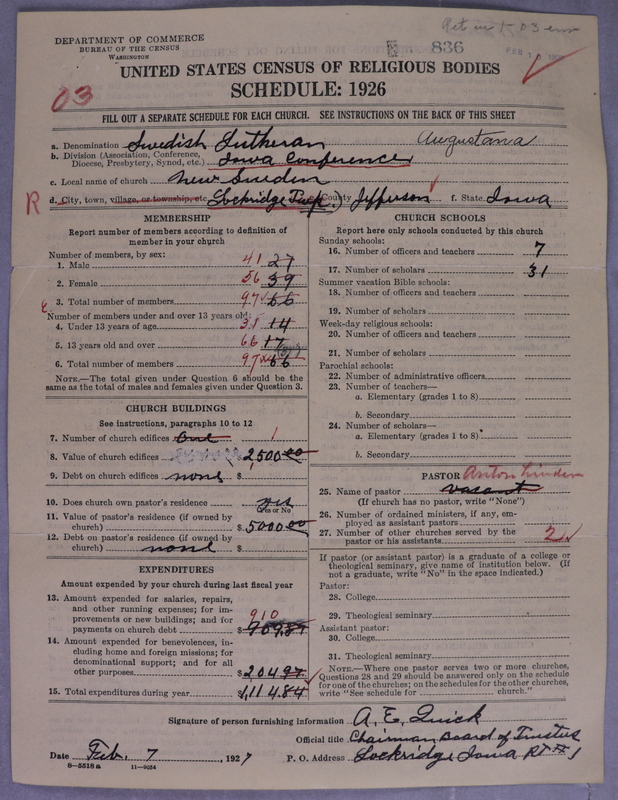 DEPARTMENT OF COMMERCE
BUREAU OF THE CENSUS
WASHINGTON
836
FEB
03
UNITED STATES CENSUS OF RELIGIOUS BODIES
SCHEDULE: 1926
FILL OUT A SEPARATE SCHEDULE FOR EACH CHURCH. SEE INSTRUCTIONS ON THE BACK OF THIS SHEET
a. Denomination Swedish Lutheran Augustana
b. Division (Association, Conference, Diocese, Presbytery, Synod, etc.) Iowa Conference
c. Local name of church New Sweden
R d. City, town, village, or township, etc. Lockridge Twp. County Jefferson f. State Iowa
MEMBERSHIP
Report number of members according to definition of
member in your church
Number of members, by sex:
1. Male 41 27
2. Female 56 39
3. Total number of members 97 66
Number of members under and over 13 years old:
4. Under 13 years of age 31 14
5. 13 years old and over 66 17
6. Total number of members 97 66
NOTE.—The total given under Question 6 should be the
same as the total of males and females given under Question 3.
CHURCH BUILDINGS
See instructions, paragraphs 10 to 12
7. Number of church edifices One 1
8. Value of church edifices $2,500.00
9. Debt on church edifices none $
10. Does church own pastor's residence yes
Yes or No
11. Value of pastor's residence (if owned by
church) $5000.00
12. Debt on pastor's residence (if owned by
church) none $
EXPENDITURES
Amount expended by your church during last fiscal year
13. Amount expended for salaries, repairs,
and other running expenses; for im-
provements or new buildings; and for
payments on church debt 910 $909.87
14. Amount expended for benevolences, in-
cluding home and foreign missions; for
denominational support; and for all
other purposes $204.97
15. Total expenditures during year $1,114.84
CHURCH SCHOOLS
Report here only schools conducted by this church
Sunday schools:
16. Number of officers and teachers 7
17. Number of scholars 31
Summer vacation Bible schools:
18. Number of officers and teachers
19. Number of scholars
Week-day religious schools:
20. Number of officers and teachers
21. Number of scholars
Parochial schools:
22. Number of administrative officers
23. Number of teachers—
a. Elementary (grades 1 to 8)
b. Secondary
24. Number of scholars—
a. Elementary (grades 1 to 8)
b. Secondary
PASTOR Anton Linden
25. Name of pastor vacant
(If church has no pastor, write "None")
26. Number of ordained ministers, if any, em-
ployed as assistant pastors
27. Number of other churches served by the
pastor or his assistants 2
If pastor (or assistant pastor) is a graduate of a college or
theological seminary, give name of institution below. (If
not a graduate, write "No" in the space indicated.)
Pastor:
28. College
29. Theological seminary
Assistant pastor:
30. College
31. Theological seminary
NOTE.—Where one pastor serves two or more churches,
Questions 28 and 29 should be answered only on the schedule
for one of the churches; on the schedules for the other churches,
write "See schedule for church."
Signature of person furnishing information A. E. Quick
Official title Chairman Board of Trustees
Date Feb. 7, 1927 P. O. Address Lockridge Iowa Rt # 1
8—5518a 11—9054